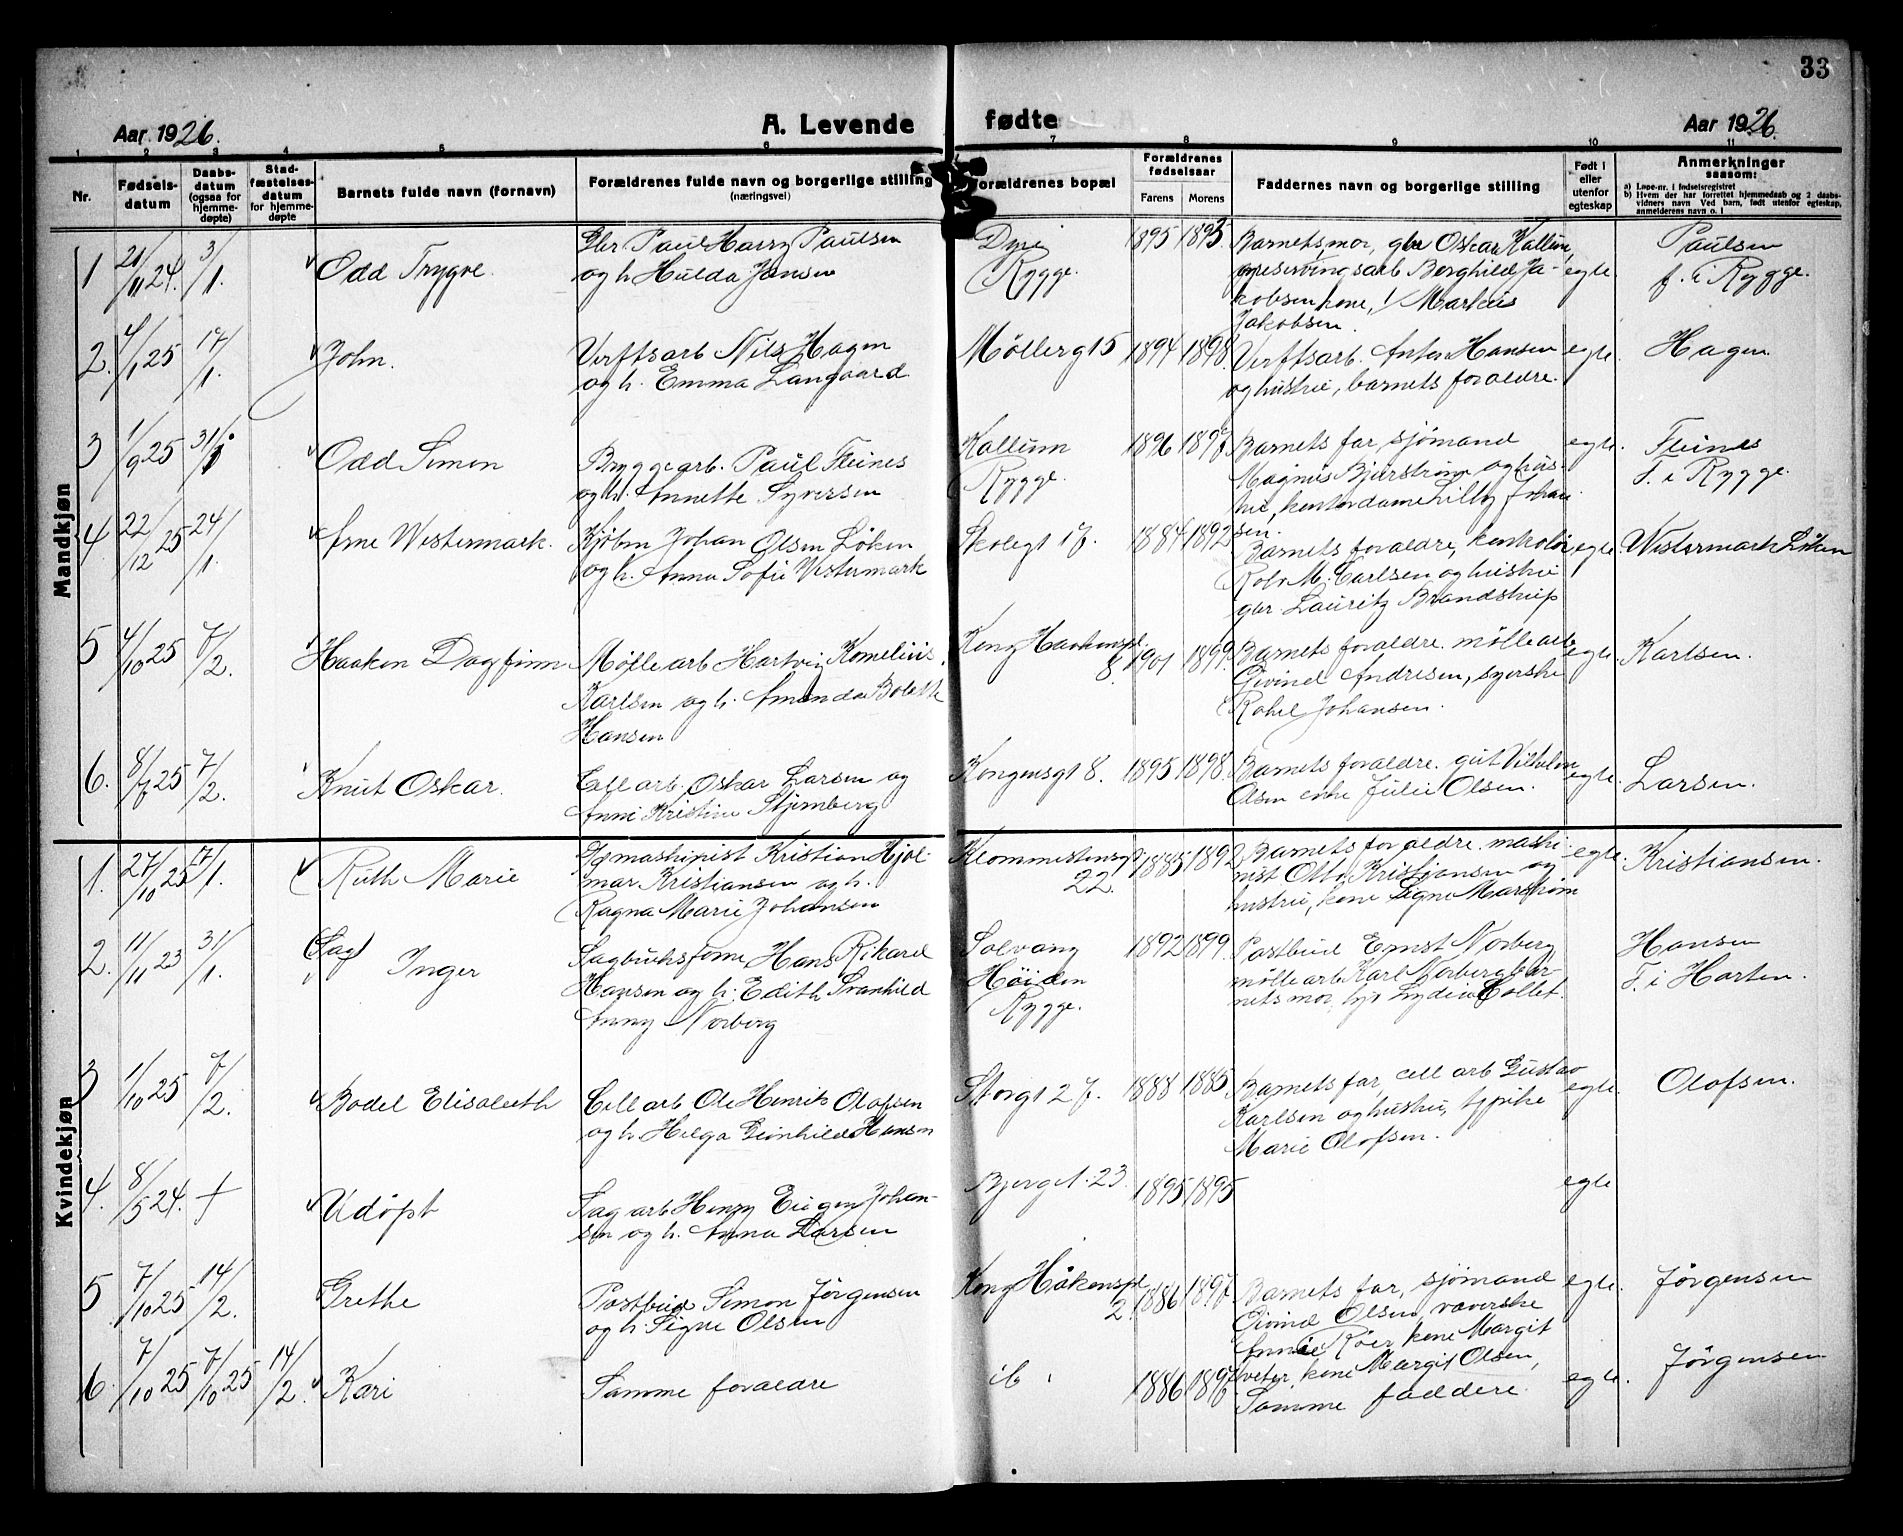 33
Aar 1926.
A. Levende fødte
Aar 1926.
1 2 3 4 5 6 7 8 9 10 11
Nr.
Fødsels-
datum
Daabs-
datum
(ogsaa for
hjemme-
døpte)
Stad-
fæstelses-
datum
for hjemme-
døpte
Barnets fulde navn (fornavn)
Forældrenes fulde navn og borgerlige stilling
(næringsvei)
Forældrenes bopæl
Forældrenes
fødselsaar
Farens Morens
Faddernes navn og borgerlige stilling
Født i
eller
utenfor
egteskap
Anmerkninger
saasom:
a) Løpe-nr. i fødselsregistret
b) Hvem der har forrettet hjemmedaab og 2 daabs-
vidners navn Ved barn, født utenfor egteskap,
anmelderens navn o. l
Mandkjøn
1 21/11 24. 3/1. Odd Trygve.
Gbr Paul Harry Paulsen
og h. Hulda Jansen
Rygge.
1895 1893
Barnets mor, gbr Oskar Kallum,
Borghild Ja-
kobsen kone, Markus
Jakobsen.
egte
Paulsen
f. i Rygge.
2. 4/1 25 17/1. John.
Verftsarb Nils Hagen
og h. Emma Langaard
Møllerg 15
1894 1898.
Verftsarb. Anton Hansen
og hustru, barnets forældre.
egte.
Hagen
3 1/9 25 31/1 Odd Simon
Bryggearb. Paul Fleines
og h. Annette Syversen
Kallum
Rygge.
1896 1897
Barnets far, sjømand
Magnus Bjurstrøm og hus-
tru, kontordame Lilly Johan
sen.
egte.
Fleines
F. i Rygge.
4 22/12 25 24/1. Arne Westermark.
Kjøbm Johan Olsen Løken
og h. Anna Sofie Westermark
Skolegt 17.
1884 1892
Barnets forældre,
Robr M. Carlsen og hustru
gbr Lauritz Brandstrup
egte.
Westermark Løken
5 4/10 25 7/2. Haakon Dagfinn
Møllearb Hartvig Kornelius
Karlsen og h. Amanda Bolette
Hansen
Kong Haakonspl.
8.
1901 1899.
Barnets forældre. møllearb
Eivind Andresen, syerske
Rakel Johansen.
egte.
Karlsen.
6. 8/7 25 7/2. Knut Oskar.
Cell arb. Oskar Larsen og
Anni Kristine Stjernberg
Kongensgt 8.
1895 1898.
Barnets forældre. gut Vilhelm
Olsen enke Julie Olsen.
egte.
Larsen.
Kvindekjøn
1. 27/10 25 17/1. Ruth Marie
maskinist Kristian Hjal-
mar Kristiansen og h.
Ragna Marie Johansen
22.
1885 1892
Barnets forældre. maski-
nist Otto Kristiansen og
hustru, kone Signe Marstrøm
egte.
Kristiansen.
2. 11/11 23 31/1. (Sag) Inger
Sagbruksform Hans Rikard
Hansen og h. Edith Svanhild
Anny Norberg
Solvang
Høiden
Rygge.
1892 1899.
Postbud Ernst Norberg
møllearb Karl Norberg bar-
nets mor, Lydia Collet.
Hansen
F. i Horten.
3 1/10 25 7/2. Bodel Elisabeth
Cell arb Ole Henrik Olafsen
og h. Helga Gunhilda Hansen
Storgt 27.
1888 1885
Barnets far, cell arb Gustav
Karlsen og hustru, tj pike
Marie Olofsen.
egte.
Olofsen.
4. 8/5 24. + Udøpt
Sag arb Henry Eugen Johan-
sen og h. Anna Larsen
Bjergt. 23
1895 1895
egte
5 7/10 25 14/2. Grethe
Postbud Simon Jørgensen
og h. Signe Olsen
Kong Håkonspl
2.
1886 1897
Barnets far, sjømand
Eivind Olsen, væverske
Annie Røer, kone Margit
kone Margit Olsen,
egte.
Jørgensen
6. 7/10 25 7/10 25 14/2. Kari
Samme forældre
ib.
1886 1897
Samme faddere.
egte.
Jørgensen